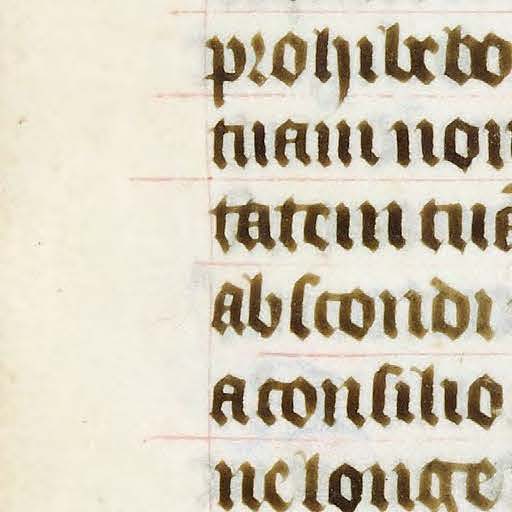 prohibebo
tuam non
tatem tuā
abscondi
a consilio
ne longe